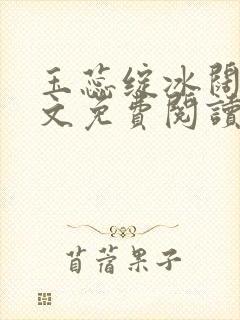 玉蕊绽冰阔
文免費閱讀
苜蓿果子